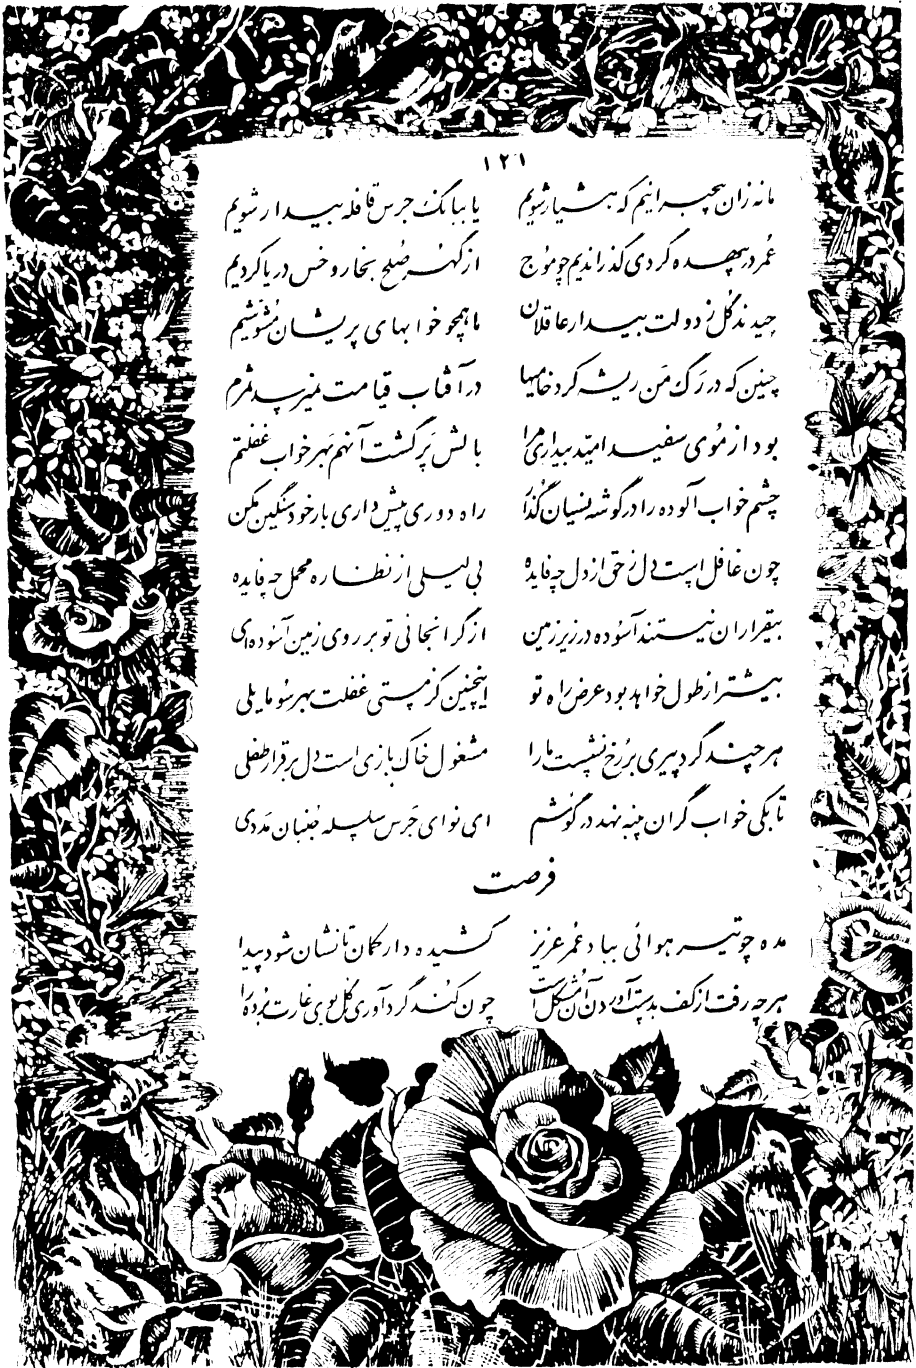 ۱۲۱
ما نه زان بیخبرانیم که هشیار شویم یا ببانگ جرس قافله بیدار شویم
عُمر در بیهده گردی گذراندیم چو مُوج از گُهر صُلح بخار و خس دریا کردیم
چیدند گُل ز دولت بیدار عاقلان ما همچو خوابهای پریشان مُشَوّشیم
چنین که در رَگ مَن ریشه کرد خامیها در آفتاب قیامت نمیرسد ثمرم
بود از مُوی سفید امیّد بیداری مرا بالش پَر گشت آنهم بَهر خواب غفلتم
چشم خواب آلوده را در گوشه نسیان گُذار راه دوری پیش داری بار خود سنگین مکن
چون غافل است دل ز حق از دل چه فایده بی لیلی از نظاره محمل چه فایده
بیقراران نیستند آسُوده در زیر زمین از گرانجانی تو بر روی زمین آسُوده‌ای
بیشتر از طول خواهد بود عرض راه تو اینچنین کز مستی غفلت بهر سُو مایلی
هر چند گرد پیری بر رُخ نشست ما را مشغول خاک بازی است دل برقرار طفلی
تا بکی خواب گران پنبه نهد در گوشم ای نوای جَرس سلسله جُنبان مَددی
فرصت
مده چو تیر هوائی بباد عُمر عزیز کشیده دار کمان تا نشان شود پیدا
هر چه رفت از کف بدست آوردن آن مُشکل است چون کُند گردآوری گُل بوی غارت بُرده را